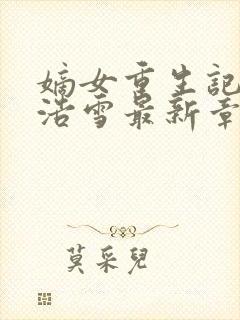 嫡女重生記
浩雪最新章
莫采兒